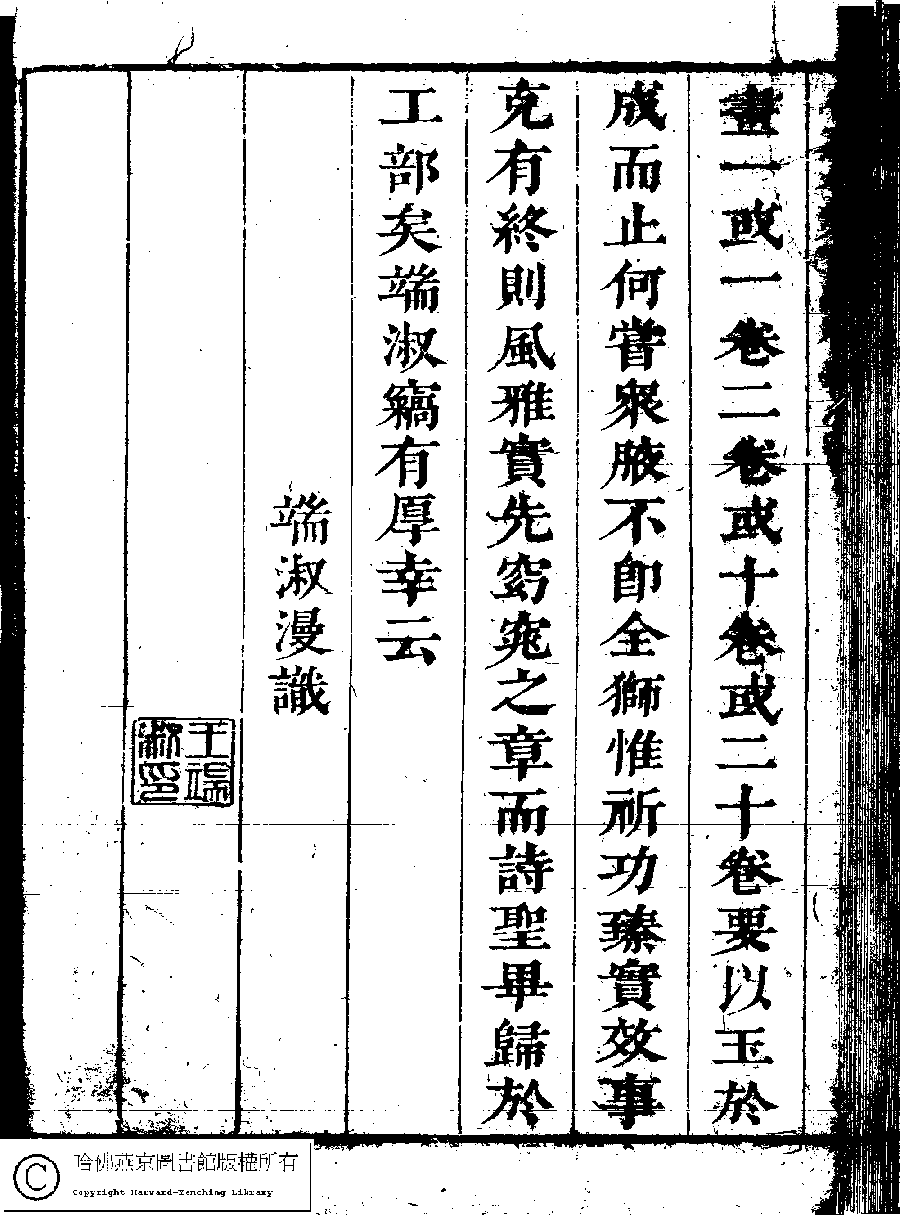 畫一或一卷二卷或十卷或二十卷要以玉於
成而止何嘗衆腋不卽全獅惟祈功臻實效事
克有終則風雅實先窈窕之章而詩聖畢歸於
工部矣端淑縞有厚幸云
端淑漫識
王端淑印
哈佛燕京圖書館版權所有
Copyright Harvard-Yenching Library